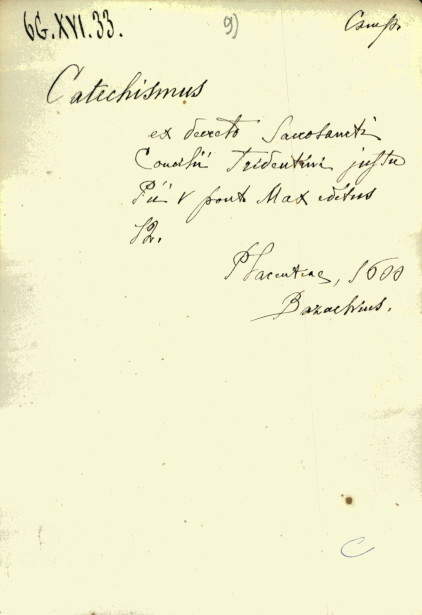 6G.XVI.33. 9) Camp.
Catechismus
ex decreto Sacrosancti
Concilii Tridentini jussu
Pii V pont Max editus
12.
Placentiae, 1600
Bazachius.
C